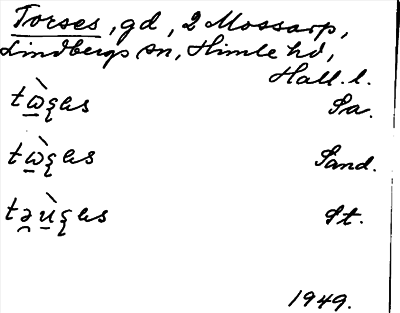 Torses, gd, 2 Mossarp,
Lindbergs sn, Himle hd,
Hall. l.
tὼʂɛs Sa.
tὼʂɛs Sand.
tə̯ùʂɛs St.
1949.